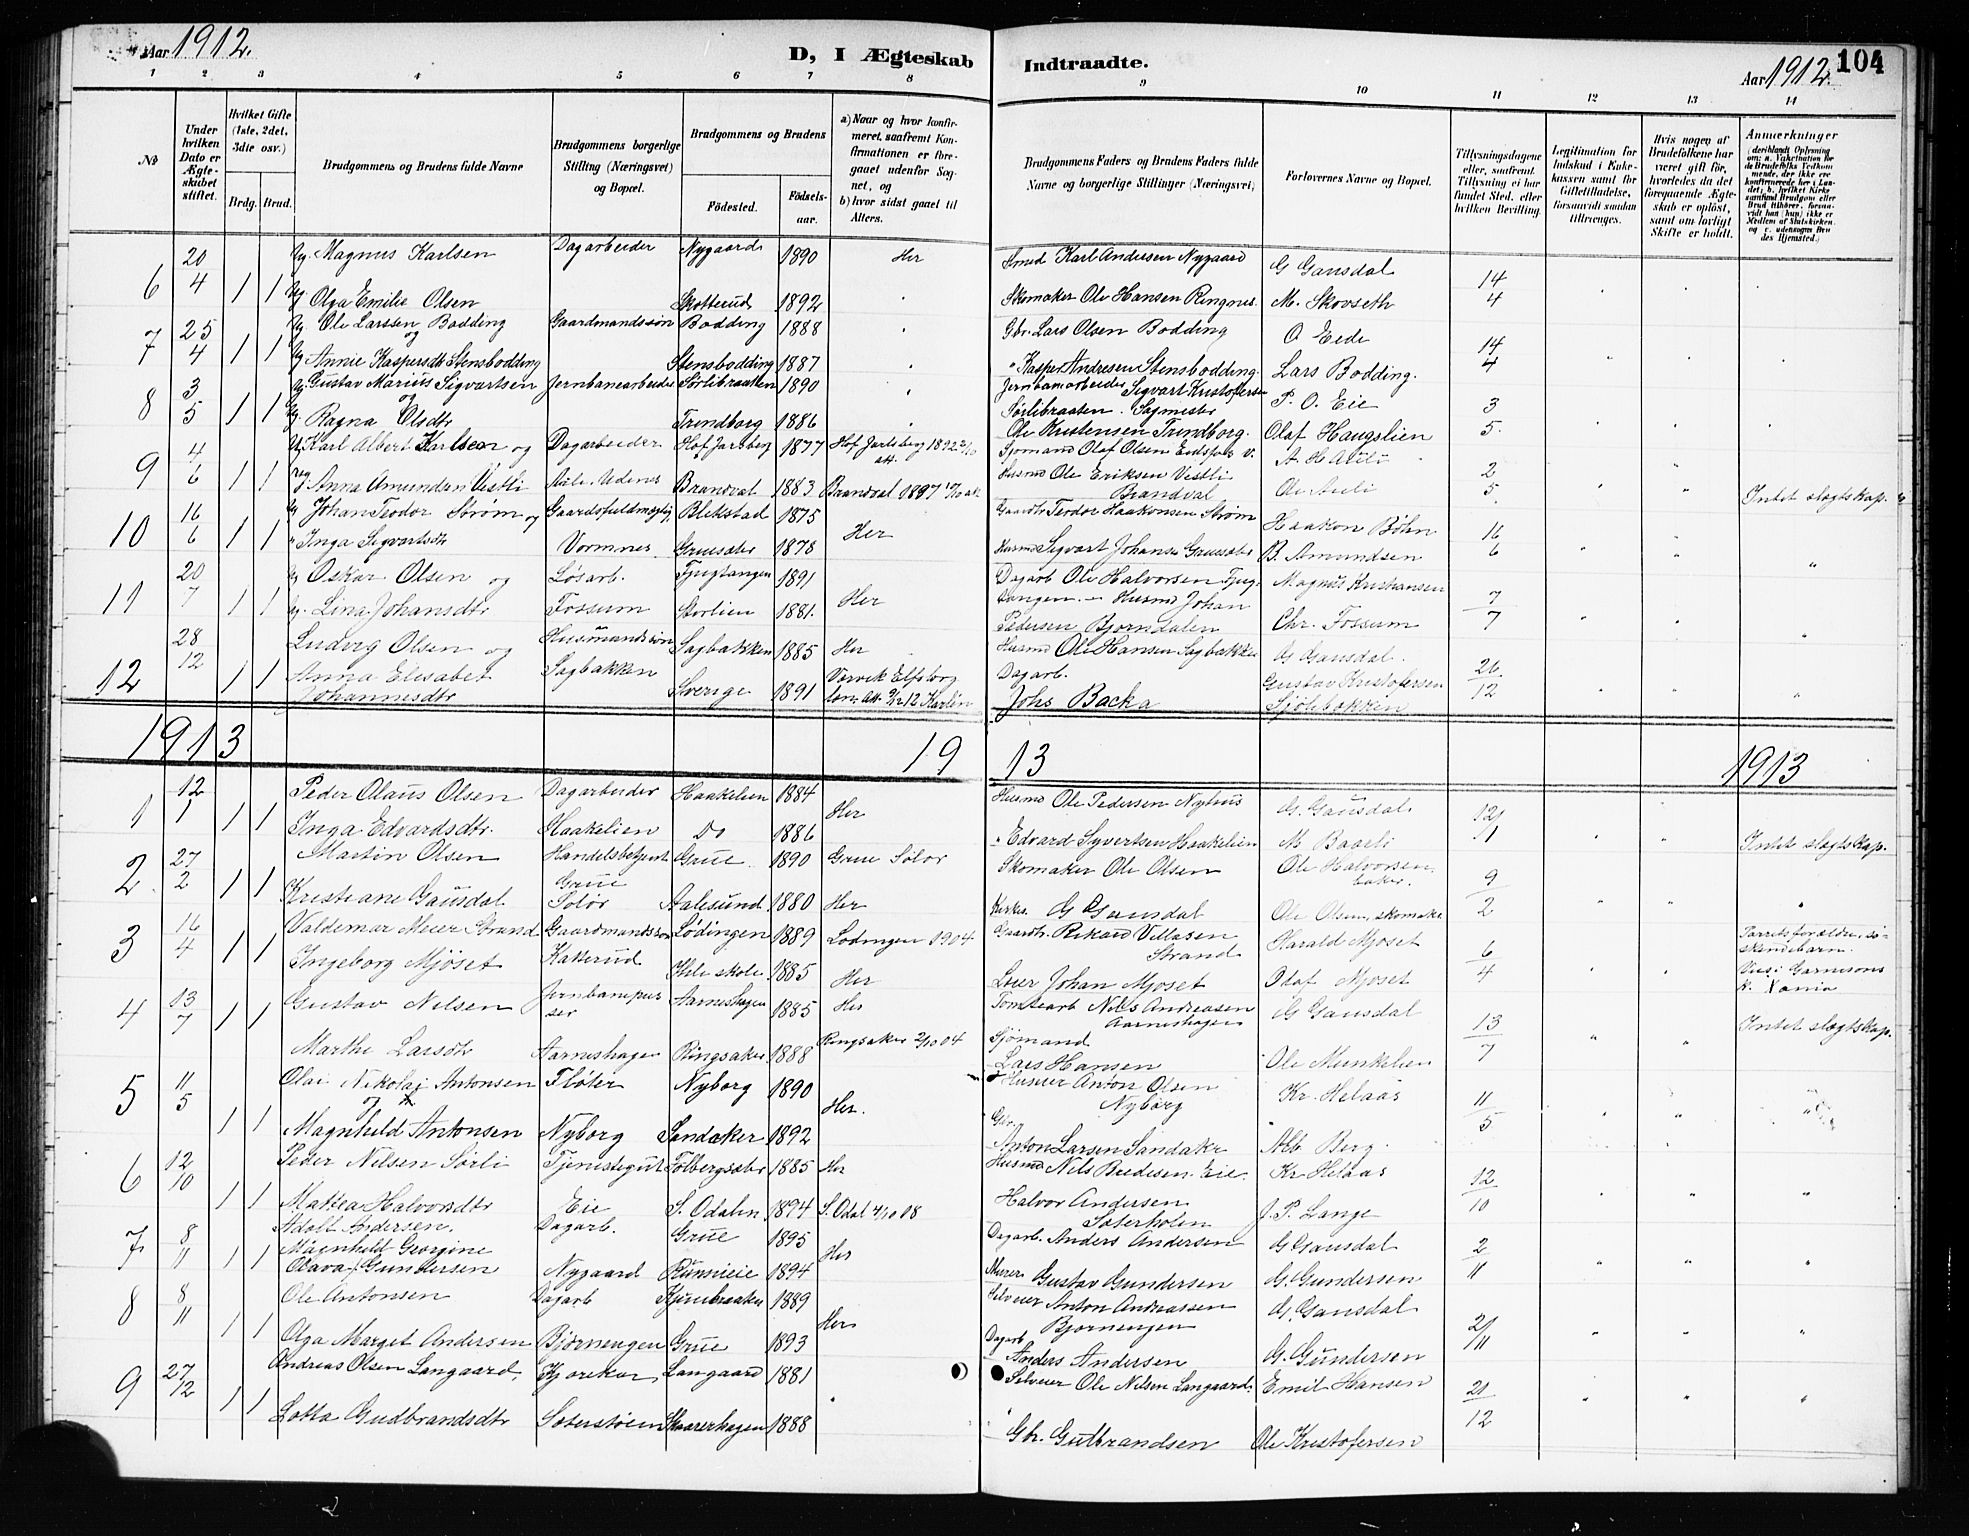 Aar 1912.
D, I Ægteskab
Indtraadte.
Aar 1912.
104
1 2 3 4 5 6 7 8 9 10 11 12 13 14
No
Under hvilken Dato er Ægteskabet stiftet.
Hvilket Gifte (1ste, 2det, 3die osv.)
Brdg. Brud.
Brudgommens og Brudens fulde Navne
Brudgommens borgerlige Stilling (Næringsvei) og Bopæl.
Brudgommens og Brudens
Fødested.
Fødselsaar.
a) Naar og hvor konfirmeret, saafremt Konfirmationen er foregaaet udenfor Sognet, og
b) hvor sidst gaaet til Alters.
Brudgommens Faders og Brudens Faders fulde Navne og borgerlige Stillinger (Næringsvei)
Forlovernes Navne og Bopæl.
Tillysningsdagene eller, saafremt Tillysning ei har fundet Sted, efter hvilken Bevilling.
Legitimation for Indskud i Enkekassen samt for Giftetilladelse, forsaavidt saadan tiltrænges.
Hvis nogen af Brudefolkene har været gift før, hvorledes da det foregaaende Ægteskab er opløst, samt om lovligt Skifte er holdt.
Anmærkninger
6 20/4 1 1 Ug. Magnus Karlsen Dagarbeider Nygaard 1890 Her Smed Karl Andersen Nygaard G Gausdal 14/4
Pg. Olga Emilie Olsen Skotterud 1892 Skomaker Ole Hansen Ringnes. M. Skovseth
7 25/4 1 1 Ug Ole Larssen Bodding og Gaardmandssøn Bodding 1888 Gbr. Lars Olsen Bodding O Eede 14/4
Pg. Annie Kaspersdtr Stensbodding Stensbodding 1887 " Kasper Andresen Stensbodding. Lars Bodding.
8 3/5 1 1 Ug Gustav Marius Sigvartsen og Jernbanearbeider Sørlibraaten 1890 Jernbanearbeider Sigvart Kristofersen Sørlibraaten. P. O. Eie 3/5
Pg. Ragna Olsdtr Trindborg 1886 Sagmester Ole Kristensen Trindborg. Olaf Haugslien
9 4/6 1 1 Karl Albert Karlsen og Dagarbeider Hof Jarlsberg 1877 Hof Jarlsberg 1892 att. Sjomand Olaf Olsen 2/5
Anna Amundsen Vestli Brandval 1883 Brandval 1897 Husmd Ole Eriksen Vestli Brandval Ole Intet slægtskap.
10 16/6 1 1 Johan Teodor Strøm og Gaardsfuldmægtig, Blekstad 1875 Her Gaardbr Teodor Haakonsen Strøm Haakon Bøhn 16/6
" Inga Sigvartsdtr Vormnes Gruesæter 1878 Husmd Sigvart Johans. Gruesæter B. Amundsen
11 20/7 1 1 Ug Oskar Olsen og Løsarb. Tjugtangen 1891 Her Dagarb Ole Halvorsen Tjugtangen. Magnus Kristiansen 7/7
Pg. Lina Johansdtr Fossum Storlien 1881. Husmd Johan Pedersen Bjorndalen Chr. Fossum
12 28/12 1 1 Ludvig Olsen og Husmandssøn Sagbakken 1885 Her Husmd Ole Hansen Sagbakken G Gausdal. 26/12
Anna Elisabet Johannesdtr Sagbakken Sverige 1891 Dagarb. Johs Backa Gustav Kristofersen
1913
19 13
1913
1 12/1 1 1 Peder Olaus Olsen Dagarbeider Haakelien 1884 Her Husmd Ole Pedersen Nyhus G. Gausdal 12/1
Inga Edvardsdtr. Haakelien Do 1886 " Edvard Syvertsen Haakelien M Baarli Intet slægtskap.
2. 27/2 1 1 Martin Olsen Handelsbetjent Grue 1890 Grue Solør Skomaker Ole Olsen Ole Halvorsen baker. 9/2
Kristiane Gausdal Grue Solør Aalesund 1880 Her G Gausdal Ole Olsen, skomaker
3 16/4 1 1 Valdemar Meier Strand Gaardmandssøn Lødingen 1889 Lodingen 1904 Gaardbr. Rikard Villasen Strand Harald Mjoset 6/4
Ingeborg Mjöset Kakerud skole 1885 Her Johan Mjoset Olaf Mjoset
4 13/7 1 1 Gustav Nilsen Jernbanepusser Aarneshagen 1885 Her Tomtearb Nils Andreasen Aarneshagen G Gausdal 13/7 Intet slægtskap.
Marthe Larsdtr Aarneshagen Ringsaker 1888 Ringsaker 2/10 04 Sjömand Lars Hansen Ole Munkelien
5 11/5 1 1 Olai Nikolai Antonsen og Fløter Nyborg 1890 Her. Anton Olsen Nyborg Kr. Helaas 11/5
Magnhild Antonsen Nyborg Sandaker 1892 Gbr. Anton Larsen Sandaker Alb. Berg.
6 12/10 1 1 Peder Nilsen Sørli Tjenestegut Tolbergsæter 1885 Her Husmd Nils Bredesen. Eie. Kr Helaas 12/10
Mattea Halvorsdtr Eie S. Odalen 1894 S. Odal 4/10 08 Halvor Andersen Soterholen J. P. Lange
7 8/11 1 1 Adolf Andersen. Dagarb. Grue 1895 Her Dagarb. Anders Andersen G Gausdal 2/11
Magnhild Georgine Olava Gundersen Nygaard Rumieie 1894 Murer Gustav Gundersen G. Gundersen
8 8/11 1 1 Ole Antonsen Dagarb 1889 Her Selveier Anton Andreassen Bjornengen G. Gausdal 21/11
Olga Marget Andersen Bjørnengen Grue 1893 Dagarb Anders Andersen G. Gundersen
9 27/12 1 1 Andreas Olsen Langaard, Kjørekar Langaard 1881 " Selveier Ole Nilsen Langaard. Emil Hansen 21/12
Lotta Gudbrandsdtr Soterstøen Skaarerhagen 1888 Gbr. Gulbrandsen Ole Kristofersen